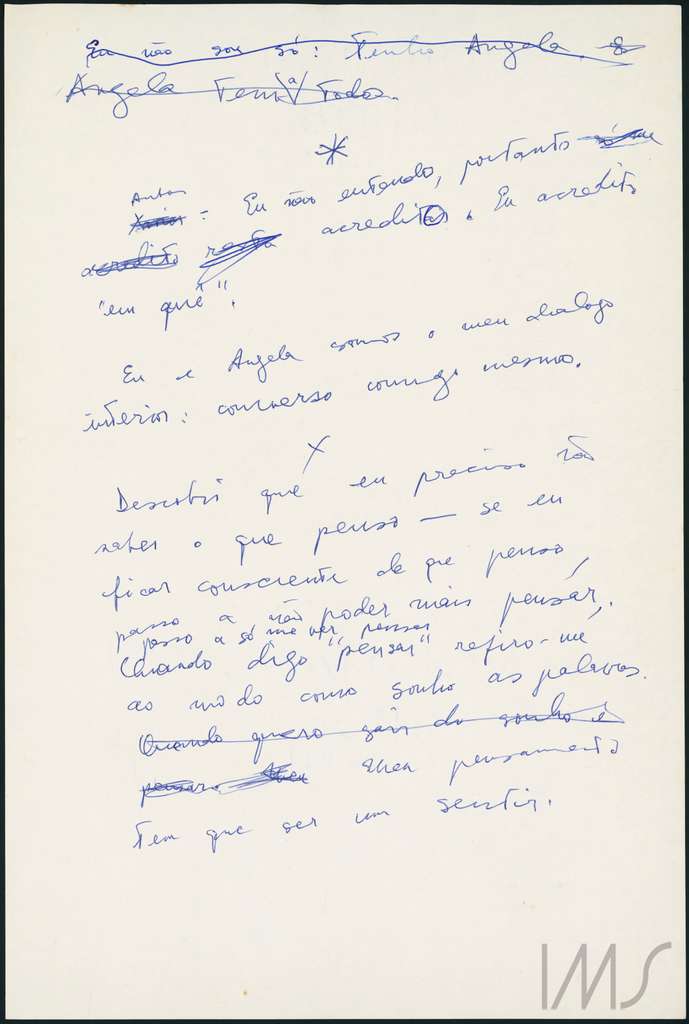 Eu não sou só: Tenho Angela. &
Angela Tem a Todos.
*
Autor
: Eu não entendo, portanto só me
acredito resta acredito. Eu acredito
"em quê".
Eu e Angela somos o meu dialogo
interior: converso comigo mesmo.
X
Descobri que eu preciso não
saber o que penso — se eu
ficar consciente de que penso,
passo a não poder mais pensar,
passo a só me ver pensar.
Quando digo "pensar" refiro-me
ao modo como sonho as palavras.
Quando quero sair do sonho é
pensar. Meu pensamento
tem que ser um sentir.
IMS